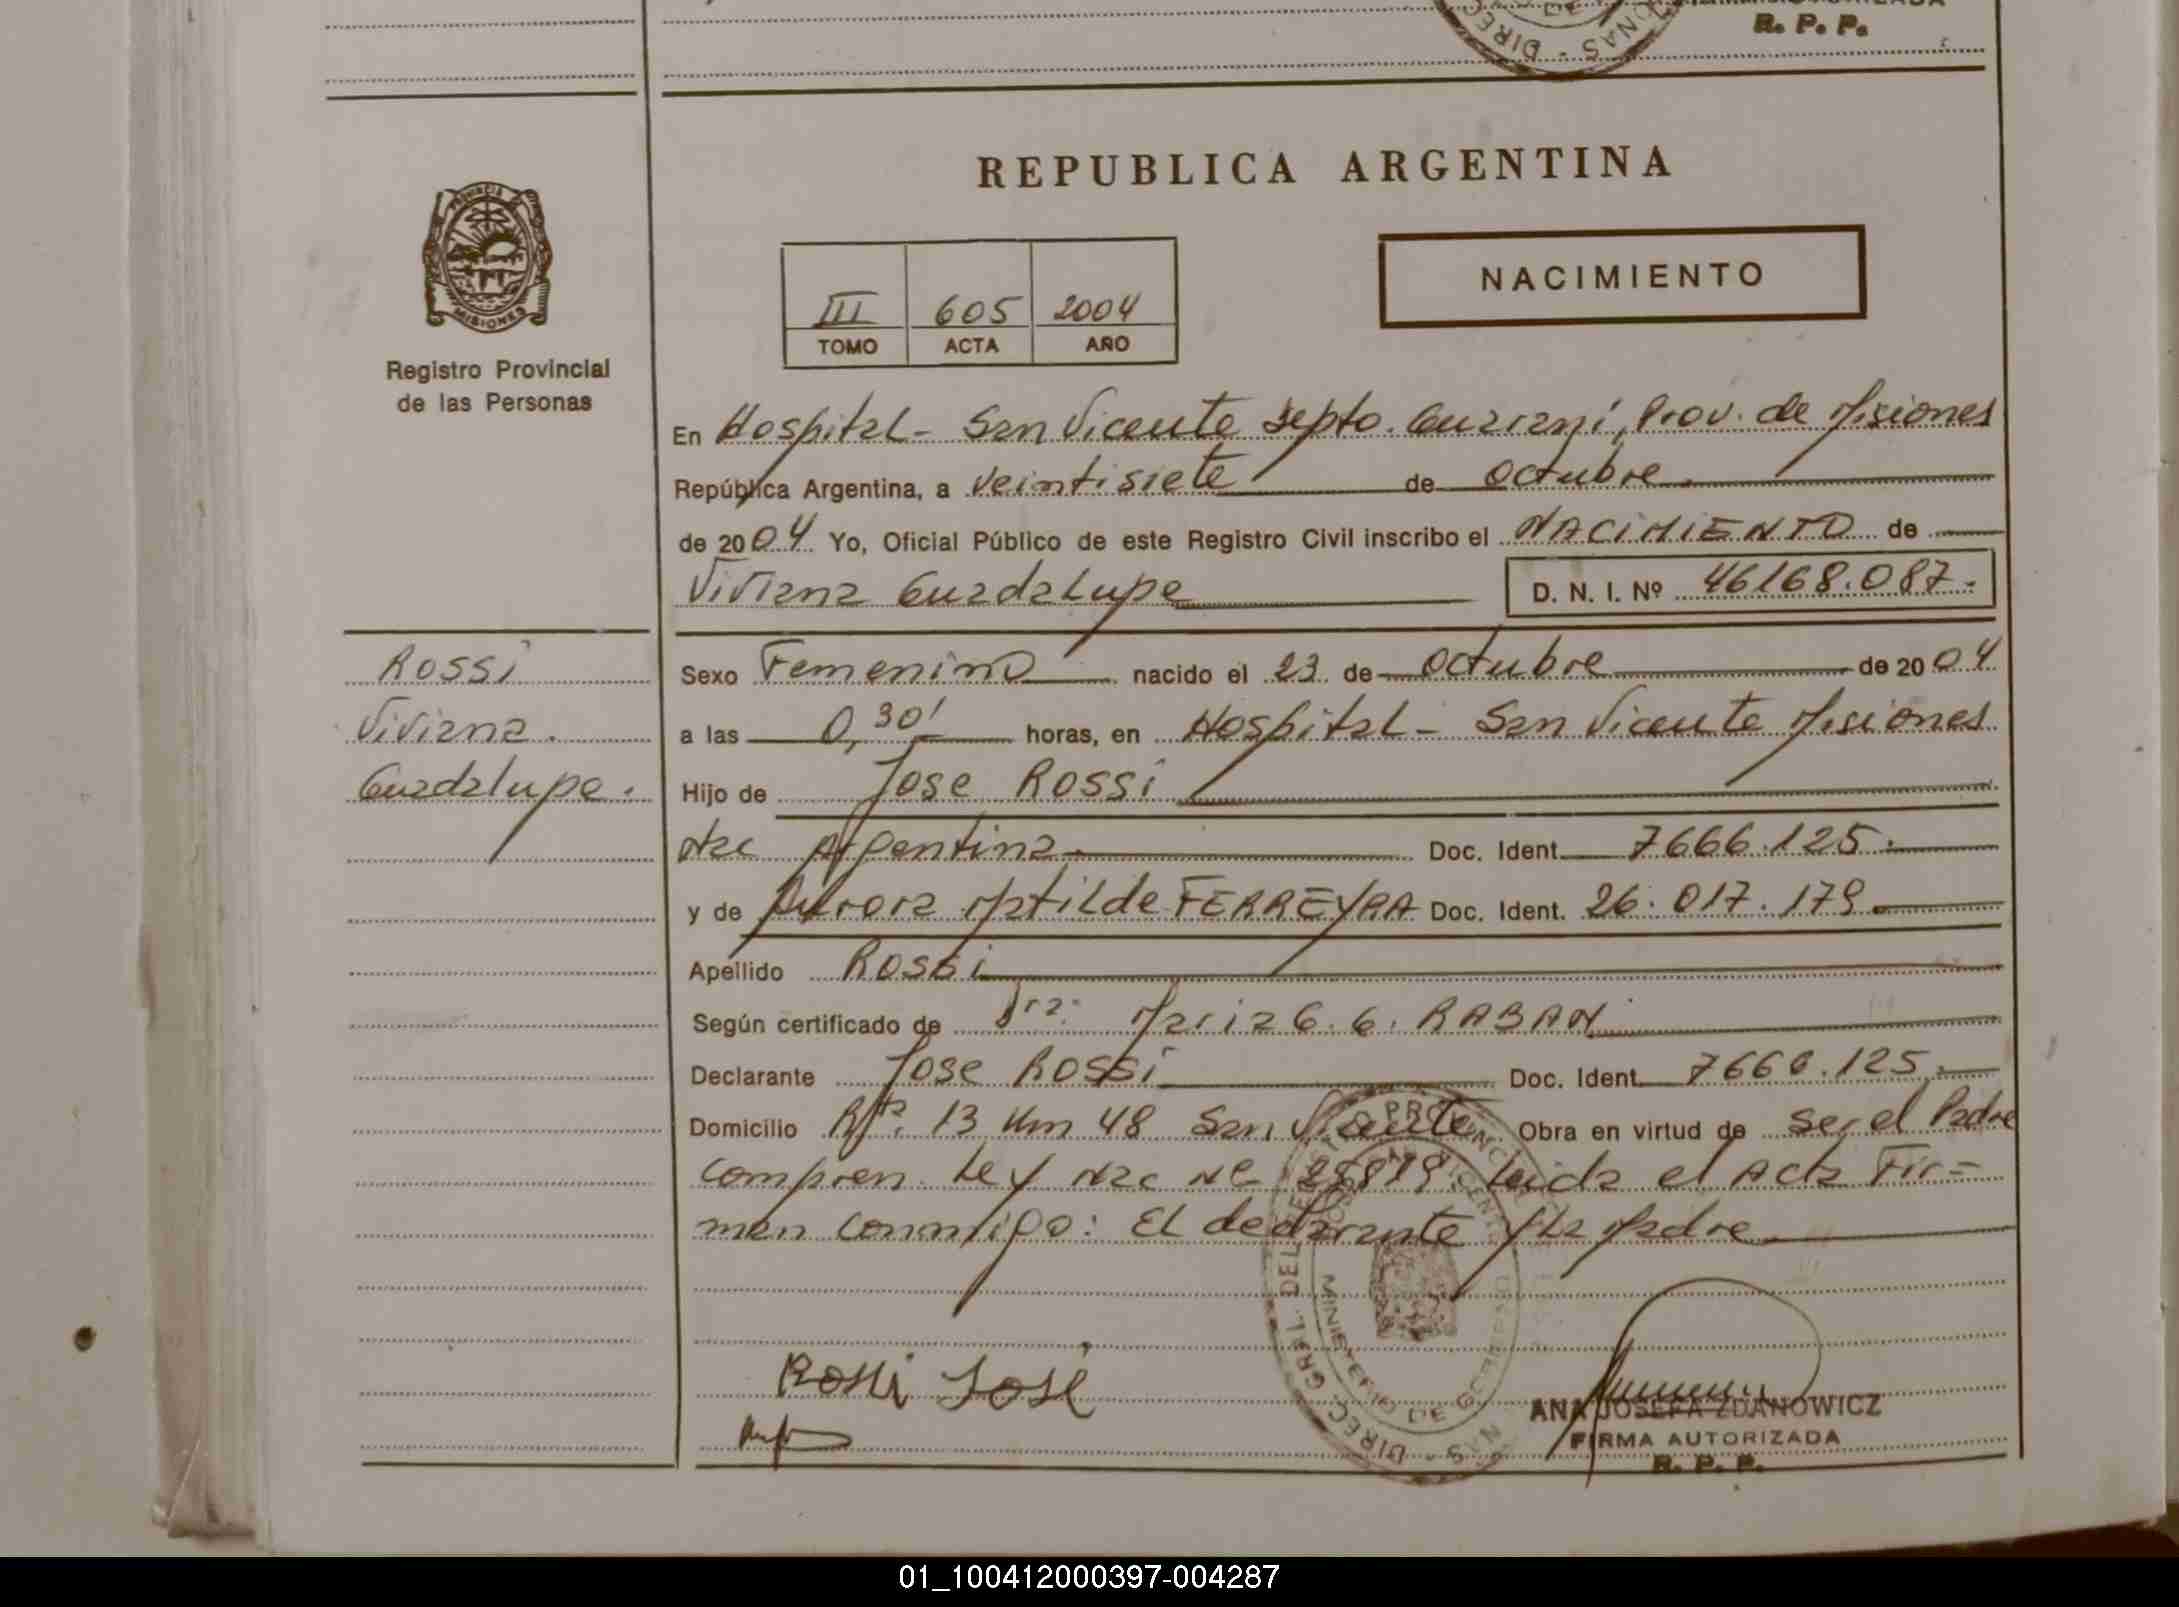 R. P. P.
REPUBLICA ARGENTINA
MISIONES
Registro Provincial
de las Personas
III 605 2004
TOMO ACTA AÑO
NACIMIENTO
En Hospital - San Vicente Depto. Guarani, Prov. de Misiones
República Argentina, a veintisiete de octubre
de 2004 Yo, Oficial Público de este Registro Civil inscribo el NACIMIENTO de
Viviana Guadalupe D. N. I. Nº 46168.087.-
Rossi
Viviana.
Guadalupe.
Sexo Femenino nacido el 23 de octubre de 2004
a las 0,30' horas, en Hospital - San Vicente Misiones
Hijo de Jose Rossi
Nac Argentina Doc. Ident. 7666.125.
y de Aurora Matilde FERREYRA Doc. Ident. 26.017.179.
Apellido Rossi
Según certificado de Dra. Maria G. G. RABAN
Declarante Jose Rossi Doc. Ident. 7666.125.
Domicilio 13 Km 48 San Vicente Obra en virtud de ser el Padre
compren. Ley Nac Nº Leida el Acta Fir=
man conmigo: El declarante y la Madre
Rossi José
ANA JOSEFA ZDANOWICZ
FIRMA AUTORIZADA
R. P. P.
MINISTERIO DE GOBIERNO
01_100412000397-004287